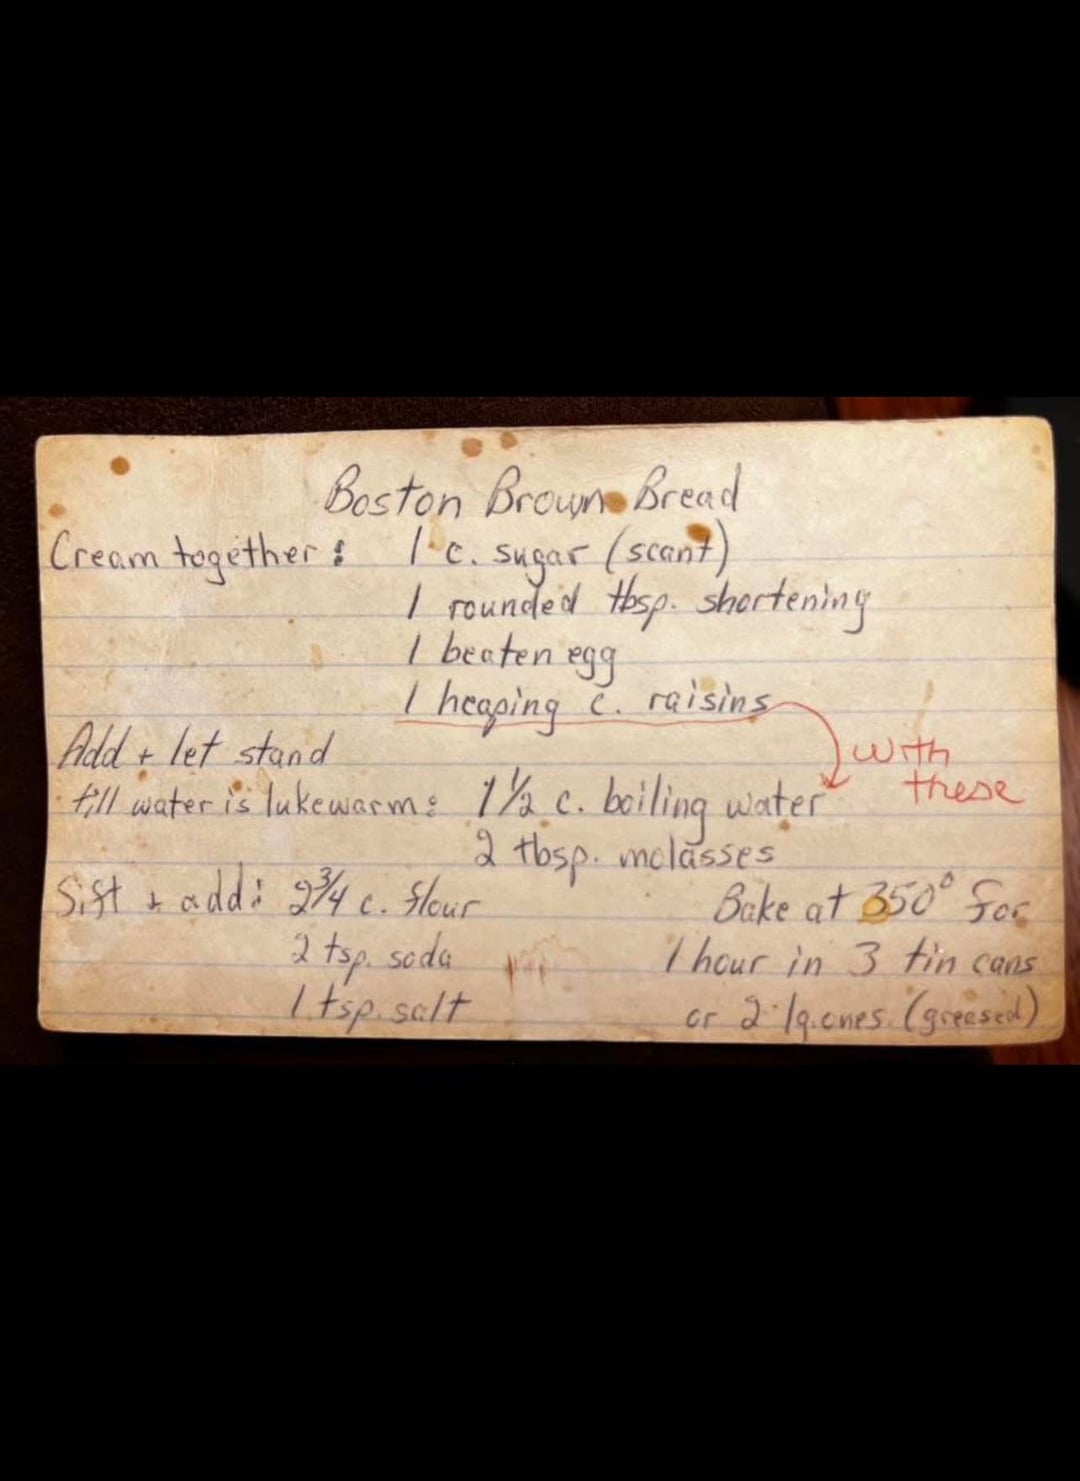 Boston Brown Bread
Cream together: 1 c. sugar (scant)
1 rounded tbsp. shortening
1 beaten egg
1 heaping c. raisins
with
these
Add + let stand
till water is lukewarm: 1 1/2 c. boiling water
2 tbsp. molasses
Sift + add: 2 3/4 c. flour
2 tsp. soda
1 tsp. salt
Bake at 350° for
1 hour in 3 tin cans
or 2 lg. ones. (greased)